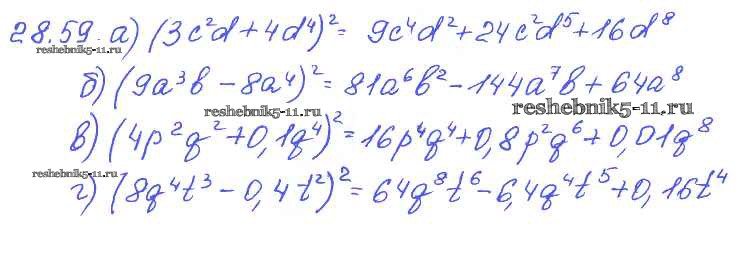 28.59. а) (3c²d + 4d⁴)² = 9c⁴d² + 24c²d⁵ + 16d⁸
reshebnik5-11.ru
б) (9a³b - 8a⁴)² = 81a⁶b² - 144a⁷b + 64a⁸
reshebnik5-11.ru
reshebnik5-11.ru
в) (4p²q² + 0,1q⁴)² = 16p⁴q⁴ + 0,8p²q⁶ + 0,01q⁸
reshebnik5-11.ru
г) (8q⁴t³ - 0,4t²)² = 64q⁸t⁶ - 6,4q⁴t⁵ + 0,16t⁴